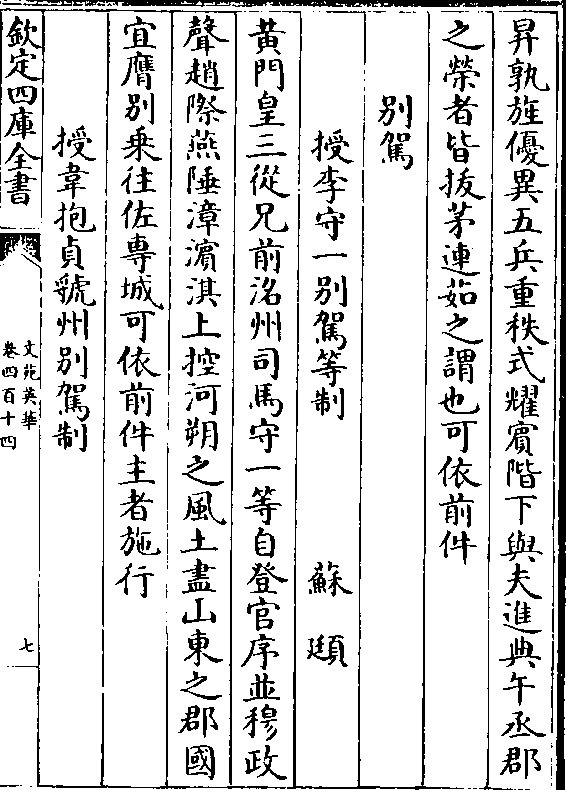 昇孰旌優異五兵重秩式耀賓階下與夫進典午丞郡
之榮者皆拔茅連茹之謂也可依前件
別駕
授李守一別駕等制 蘇頲
黄門皇三從兄前洺州司馬守一等自登官序並穆政
聲趙際燕陲漳濵淇上控河朔之風土盡山東之郡國
宜膺別乗往佐專城可依前件主者施行
授韋抱貞虢州別駕制
欽定四庫全書
文苑英華
卷四百十四
七